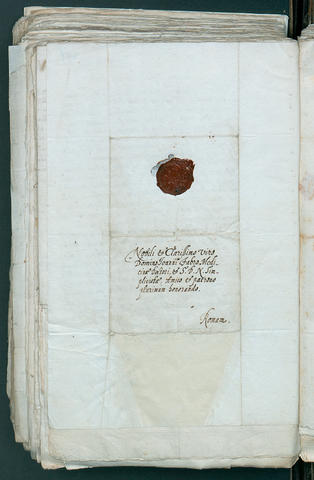 Nobili & Clarissimo viro
Domino Joanni Fabro, Medi-
cinæ Doctori, & S. D. N. Sim-
plicistæ, Amico & patrono
plurimum honorando.
Romam.